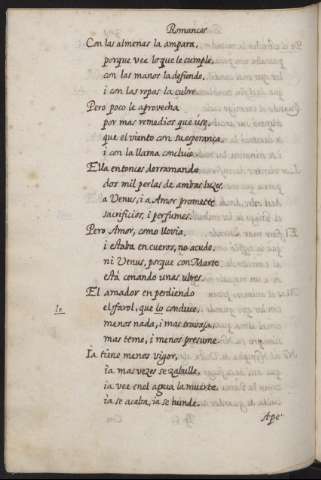 Romances
Con las almenas la ampara,
porque vee lo que le cumple,
con las manos la defiende,
i con las ropas la cubre.
Pero poco le aprovecha
por mas remedios que use,
que el viento con su esperança
i con la llama concluie.
Ella entonces derramando
dos mil perlas de ambas luzes,
a Venus, i a Amor promette
sacrificios, i perfumes.
Pero Amor, como llovia,
i estaba en cueros, no acude,
ni Venus, porque con Marte
està cenando unas ubres.
El amador en perdiendo
lo
el farol, que lo conduce,
menos nada, i mas trabaja,
mas teme, i menos presume.
Ia tiene menos vigor,
ia mas vezes se zabulle,
ia vee en el agua la muerte,
ia se acaba, ia se hunde.
Ape